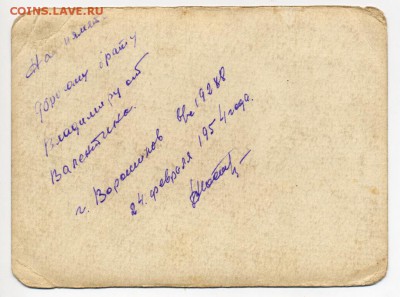 COINS.ЛАВЕ.РУ
На память
дорогому брату
Владимиру от
Валентина.
г. Ворошилов
24 февраля 1954 года.